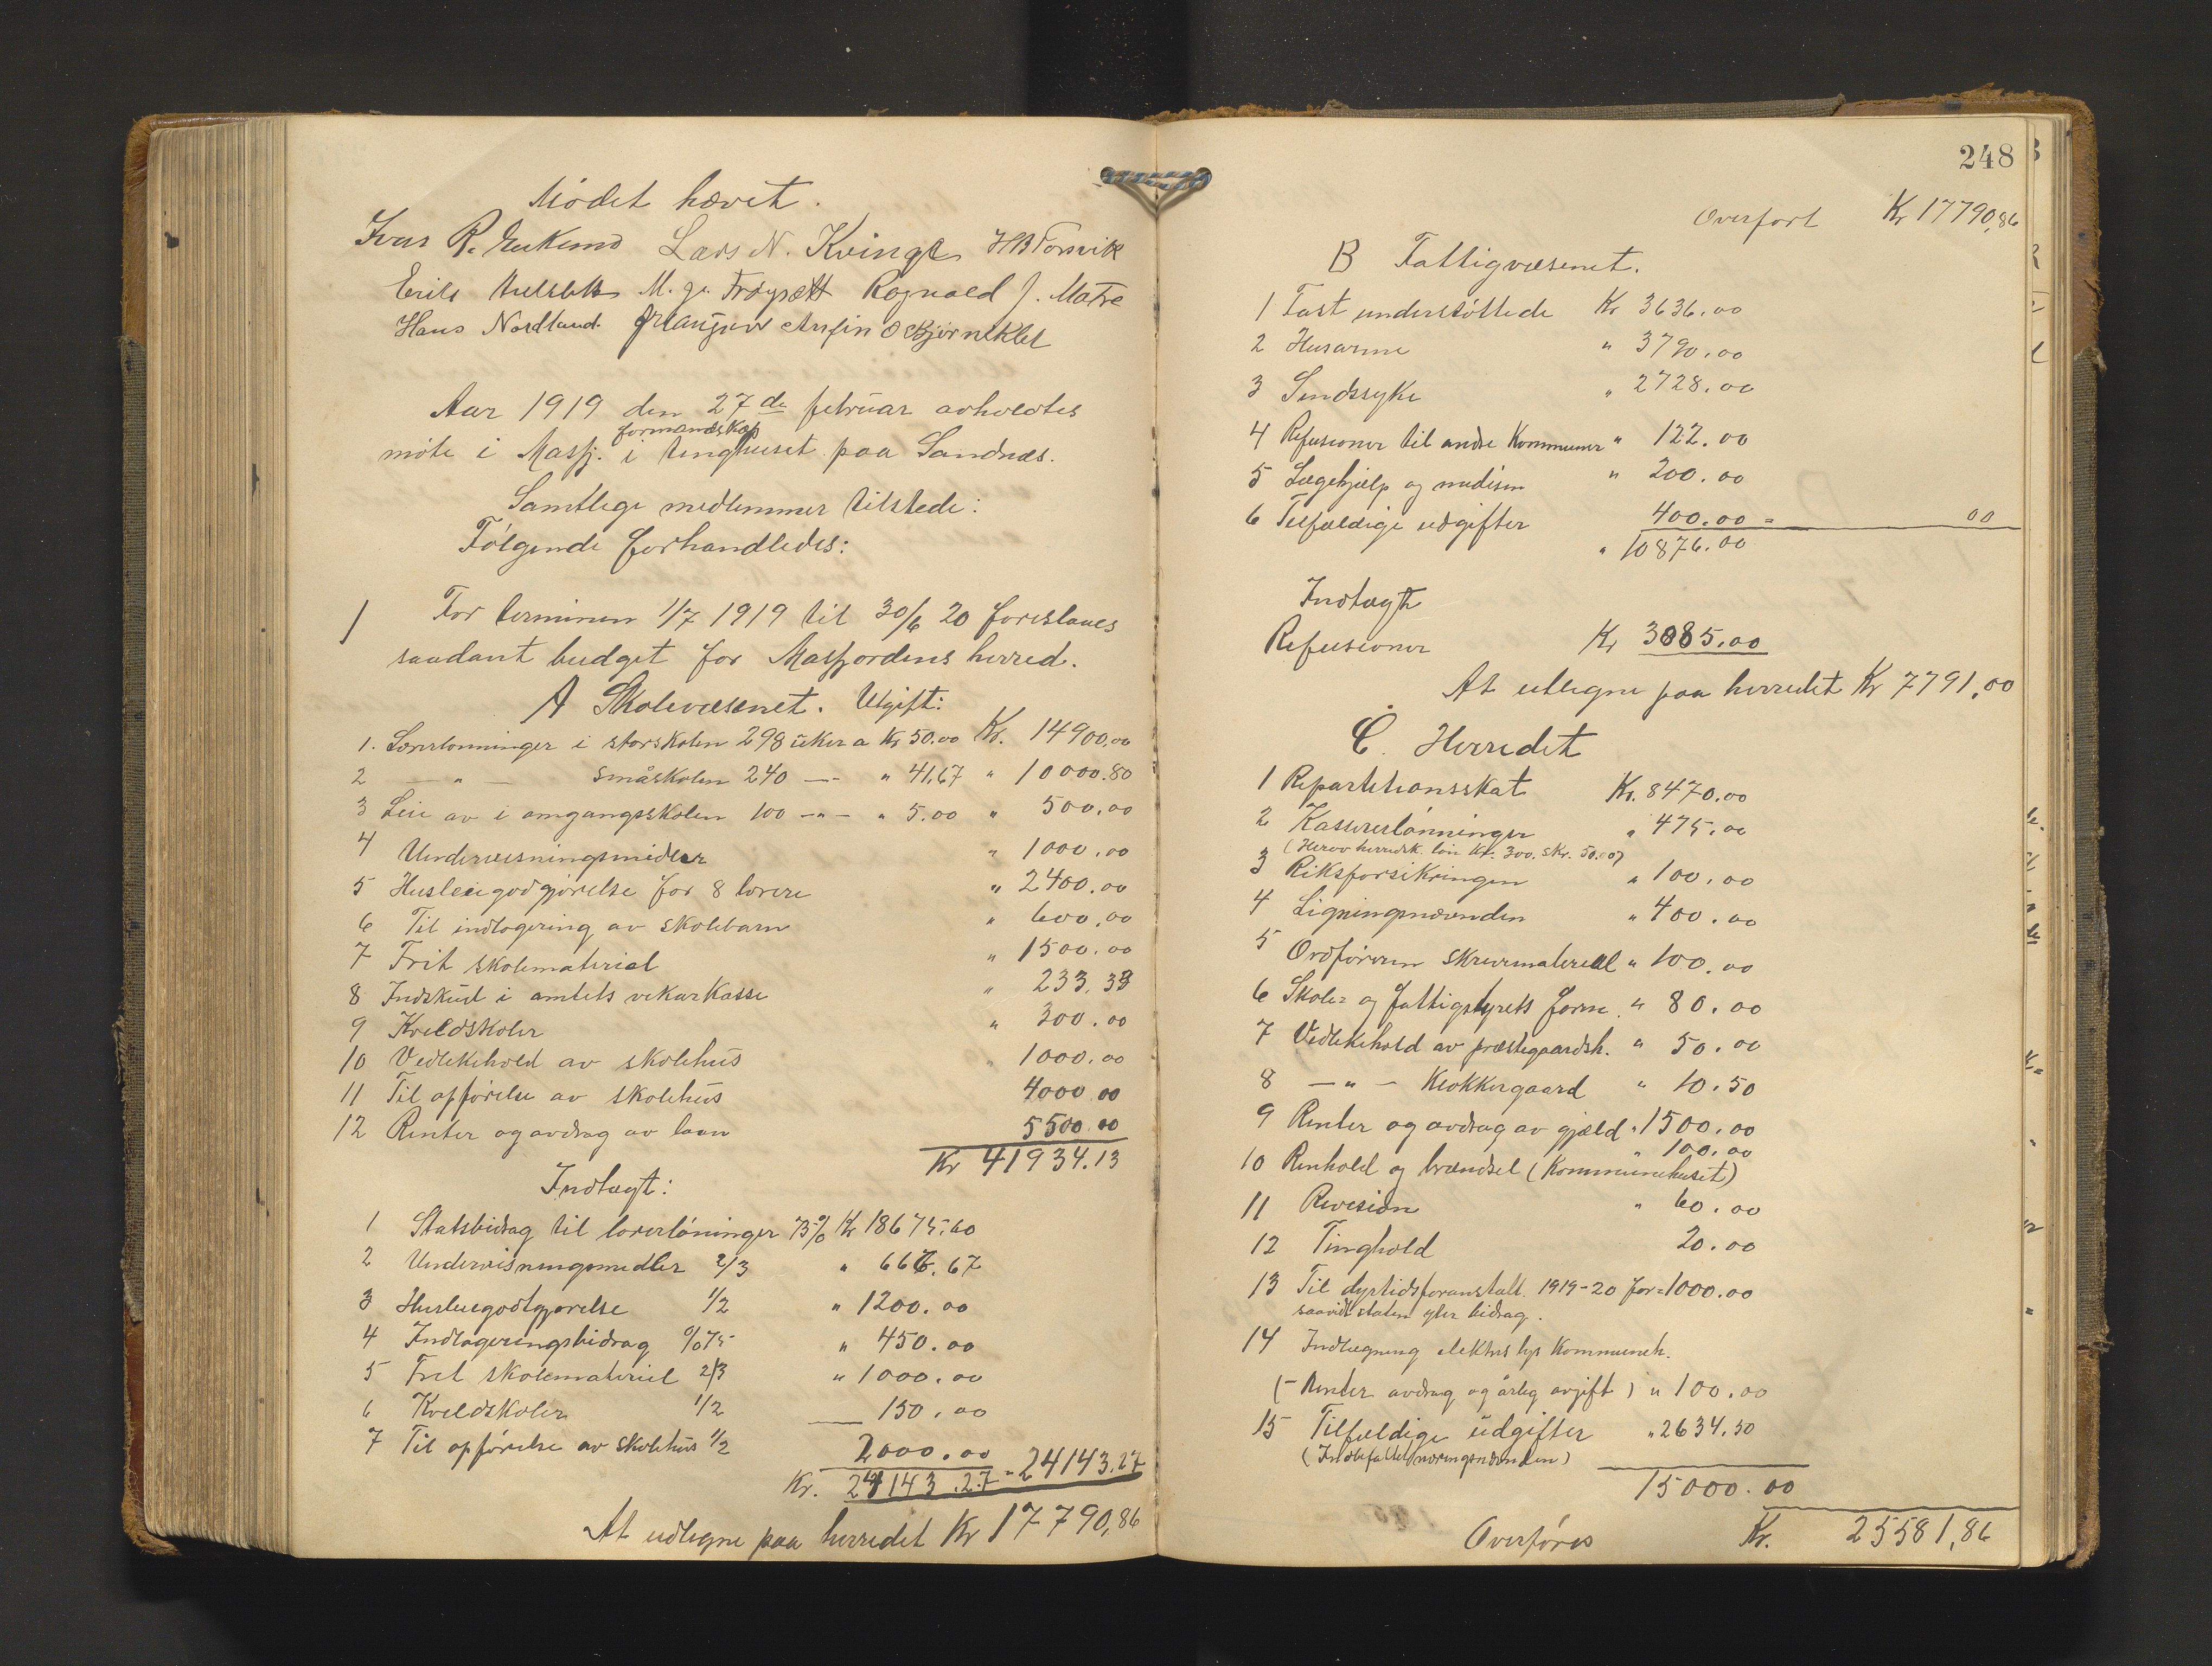 Mødet hævet.
Ivar R. Lars N. Kvinge HB Torsvik
Erik M. J. Frøysett Ragnald J. Matre
Hans Nordland. Anfin O Bjørneklet
Aar 1919 den 27de februar avholdtes
formandskap
møte i Masfj. i tinghuset paa Sandnæs.
Samtlige medlemmer tilstede:
Følgende forhandledes:
1 For terminen 1/7 1919 til 30/6 20 foreslaaes
saadant budget for Masfjordens herred.
A Skolevæsenet. Utgift:
1. Lærerlønninger i storskolen 298 uker a Kr 50.00 Kr. 14900,00
2 — " — småskolen 240 — " 41,67 " 10000.80
3 Leie av i omgangsskolen 100 — " — " 5.00 " 500.00
4 Undervisningsmidler " 1000.00
5 Husleiegodgjørelse for 8 lærere " 2400.00
6 Til indlogering av skolebarn " 600.00
7 Frit skolemateriel " 1500.00
8 Indskud i amtets vikarkasse " 233,33
9 Kveldskoler " 300.00
10 Vedlikehold av skolehus " 1000.00
11 Til opførelse av skolehus 4000.00
12 Renter og avdrag av laan 5500.00
Kr 41934.13
Indtægt:
1 Statsbidrag til lærerlønninger 75% Kr 18675.60
2 Undervisningsmidler 2/3 " 666.67
3 Husleiegodtgjørelse 1/2 " 1200.00
4 Indlogeringsbidrag %75 " 450.00
5 Frit skolemateriel 2/3 " 1000.00
6 Kveldskoler 1/2 — 150.00
7 Til opførelse av skolehus 1/2 2000.00
Kr. 24143.27 = 24143.27
At udlegne paa herredet Kr 17790,86
248
Overført Kr 17790,86
B Fattigvæsenet.
1 Fast understøttede Kr 3636.00
2 Husarme " 3790.00
3 Sindssyke " 2728.00
4 Refusioner til andre Kommuner " 122.00
5 Lægehjælp og medisin " 200.00
6 Tilfældige udgifter 400.00 = 00
" 10876.00
Indtægt
Refusioner Kr 3085.00
At utlegne paa herredet Kr 7791,00
C. Herredet
1 Repartitionsskat Kr. 8470.00
2 Kassererlønninger " 475.00
(Herav herredsk. løn Kr. 300. Skr. 50.00)
3 Riksforsikringen " 100.00
4 Ligningsnævnden " 400.00
5 Ordføreren skrivemateriell " 100.00
6 Skole= og fattigstyrets form. " 80.00
7 Vedlikehold av præstegaardsh. " 50.00
8 — " — Klokkergaard " 10.50
9 Renter og avdrag av gjæld " 1500.00
10 Renhold og brændsel (Kommunehuset) " 100.00
11 Revision " 60.00
12 Tinghold 20.00
13 Til dyrtidsforanstalt. 1919-20 for = 1000.00
saavidt staten yder bidrag.
14 Indlægning elektris lys Kommuneh.
(- Renter avdrag og årlig avgift) " 100.00
15 Tilfældige udgifter " 2634.50
(Indbefattet næringsnævnden)
15000.00
Overføres Kr. 25581,86